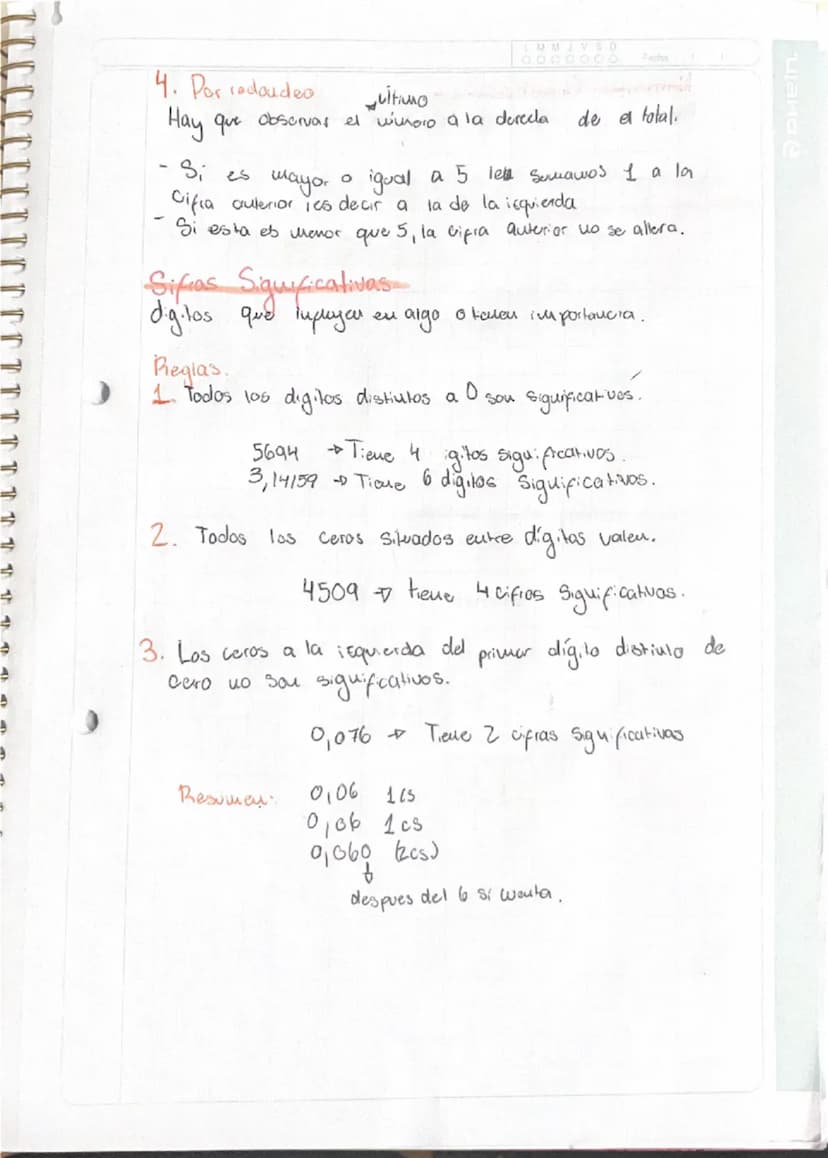 L M M J V S D
Fecha
4. Por redondeo
último
Hay que observar el número a la derecha de el total.
- Si es mayor o igual a 5 le sumamos 1 a la
cifra anterior ies decir a la de la izquierda
- Si esta es menor que 5, la cifra anterior no se altera.
Sifras Significativas
digitos que influyen en algo o tienen importancia.
Reglas.
1. Todos los digitos distintos a 0 son significativos.
5694 → Tiene 4 igitos significativos.
3,14159 → Tiene 6 digitos significativos.
2. Todos los ceros situados entre dígitos valen.
4509 → tiene 4 cifras significativas.
3. Los ceros a la izquierda del primer dígito distinto de
cero no son significativos.
0,076 → Tiene 2 cifras significativas
Resumen: 0,06 1cs
0,06 1cs
0,060 (2cs)
↓
despues del 6 si cuenta.